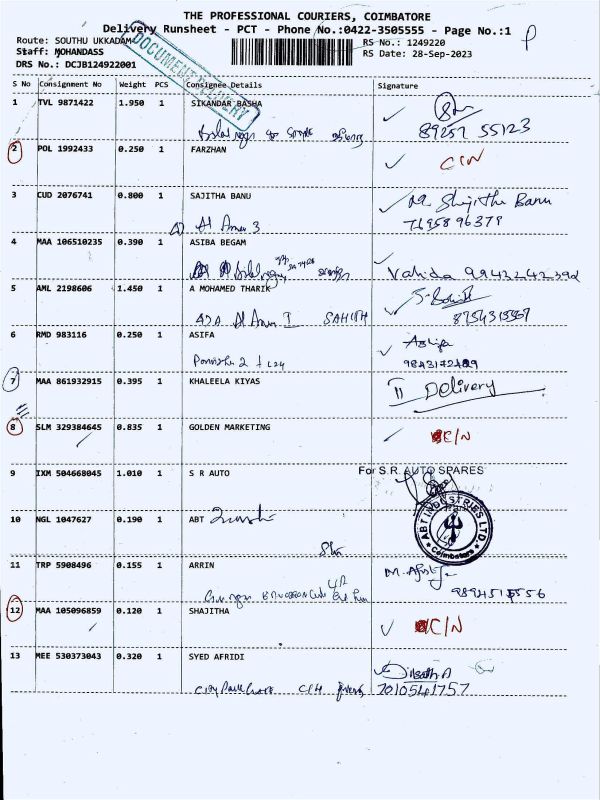 THE PROFESSIONAL COURIERS, COIMBATORE
Delivery Runsheet - PCT - Phone No.:0422-3505555 - Page No.:1
P
Route: SOUTHU UKKADAM
RS No.: 1249220
Staff: MOHANDASS
RS Date: 28-Sep-2023
DRS No.: DCJB124922001
DOCUMENT DELIVERY
S No Consignment No Weight PCS Consignee Details Signature
1 TVL 9871422 1.950 1 SIKANDAR BASHA
89257 55123
2 POL 1992433 0.250 1 FARZHAN C/N
3 CUD 2076741 0.800 1 SAJITHA BANU
Banu
Al Amen 3
4 MAA 106510235 0.390 1 ASIBA BEGAM
Vahida 9943242392
5 AML 2198606 1.450 1 A MOHAMED THARIK
Al Amen I SAHITH
6 RMD 983116 0.250 1 ASIFA
Asifa
7 MAA 861932915 0.395 1 KHALEELA KIYAS II Delivery
8 SLM 329384645 0.835 1 GOLDEN MARKETING C/N
9 IXM 504668045 1.010 1 S R AUTO For S.R. AUTO SPARES
10 NGL 1047627 0.190 1 ABT
ABT INDUSTRIES LTD.
Coimbatore
11 TRP 5908496 0.155 1 ARRIN
12 MAA 105096859 0.120 1 SHAJITHA C/N
13 MEE 530373043 0.320 1 SYED AFRIDI
7010541757